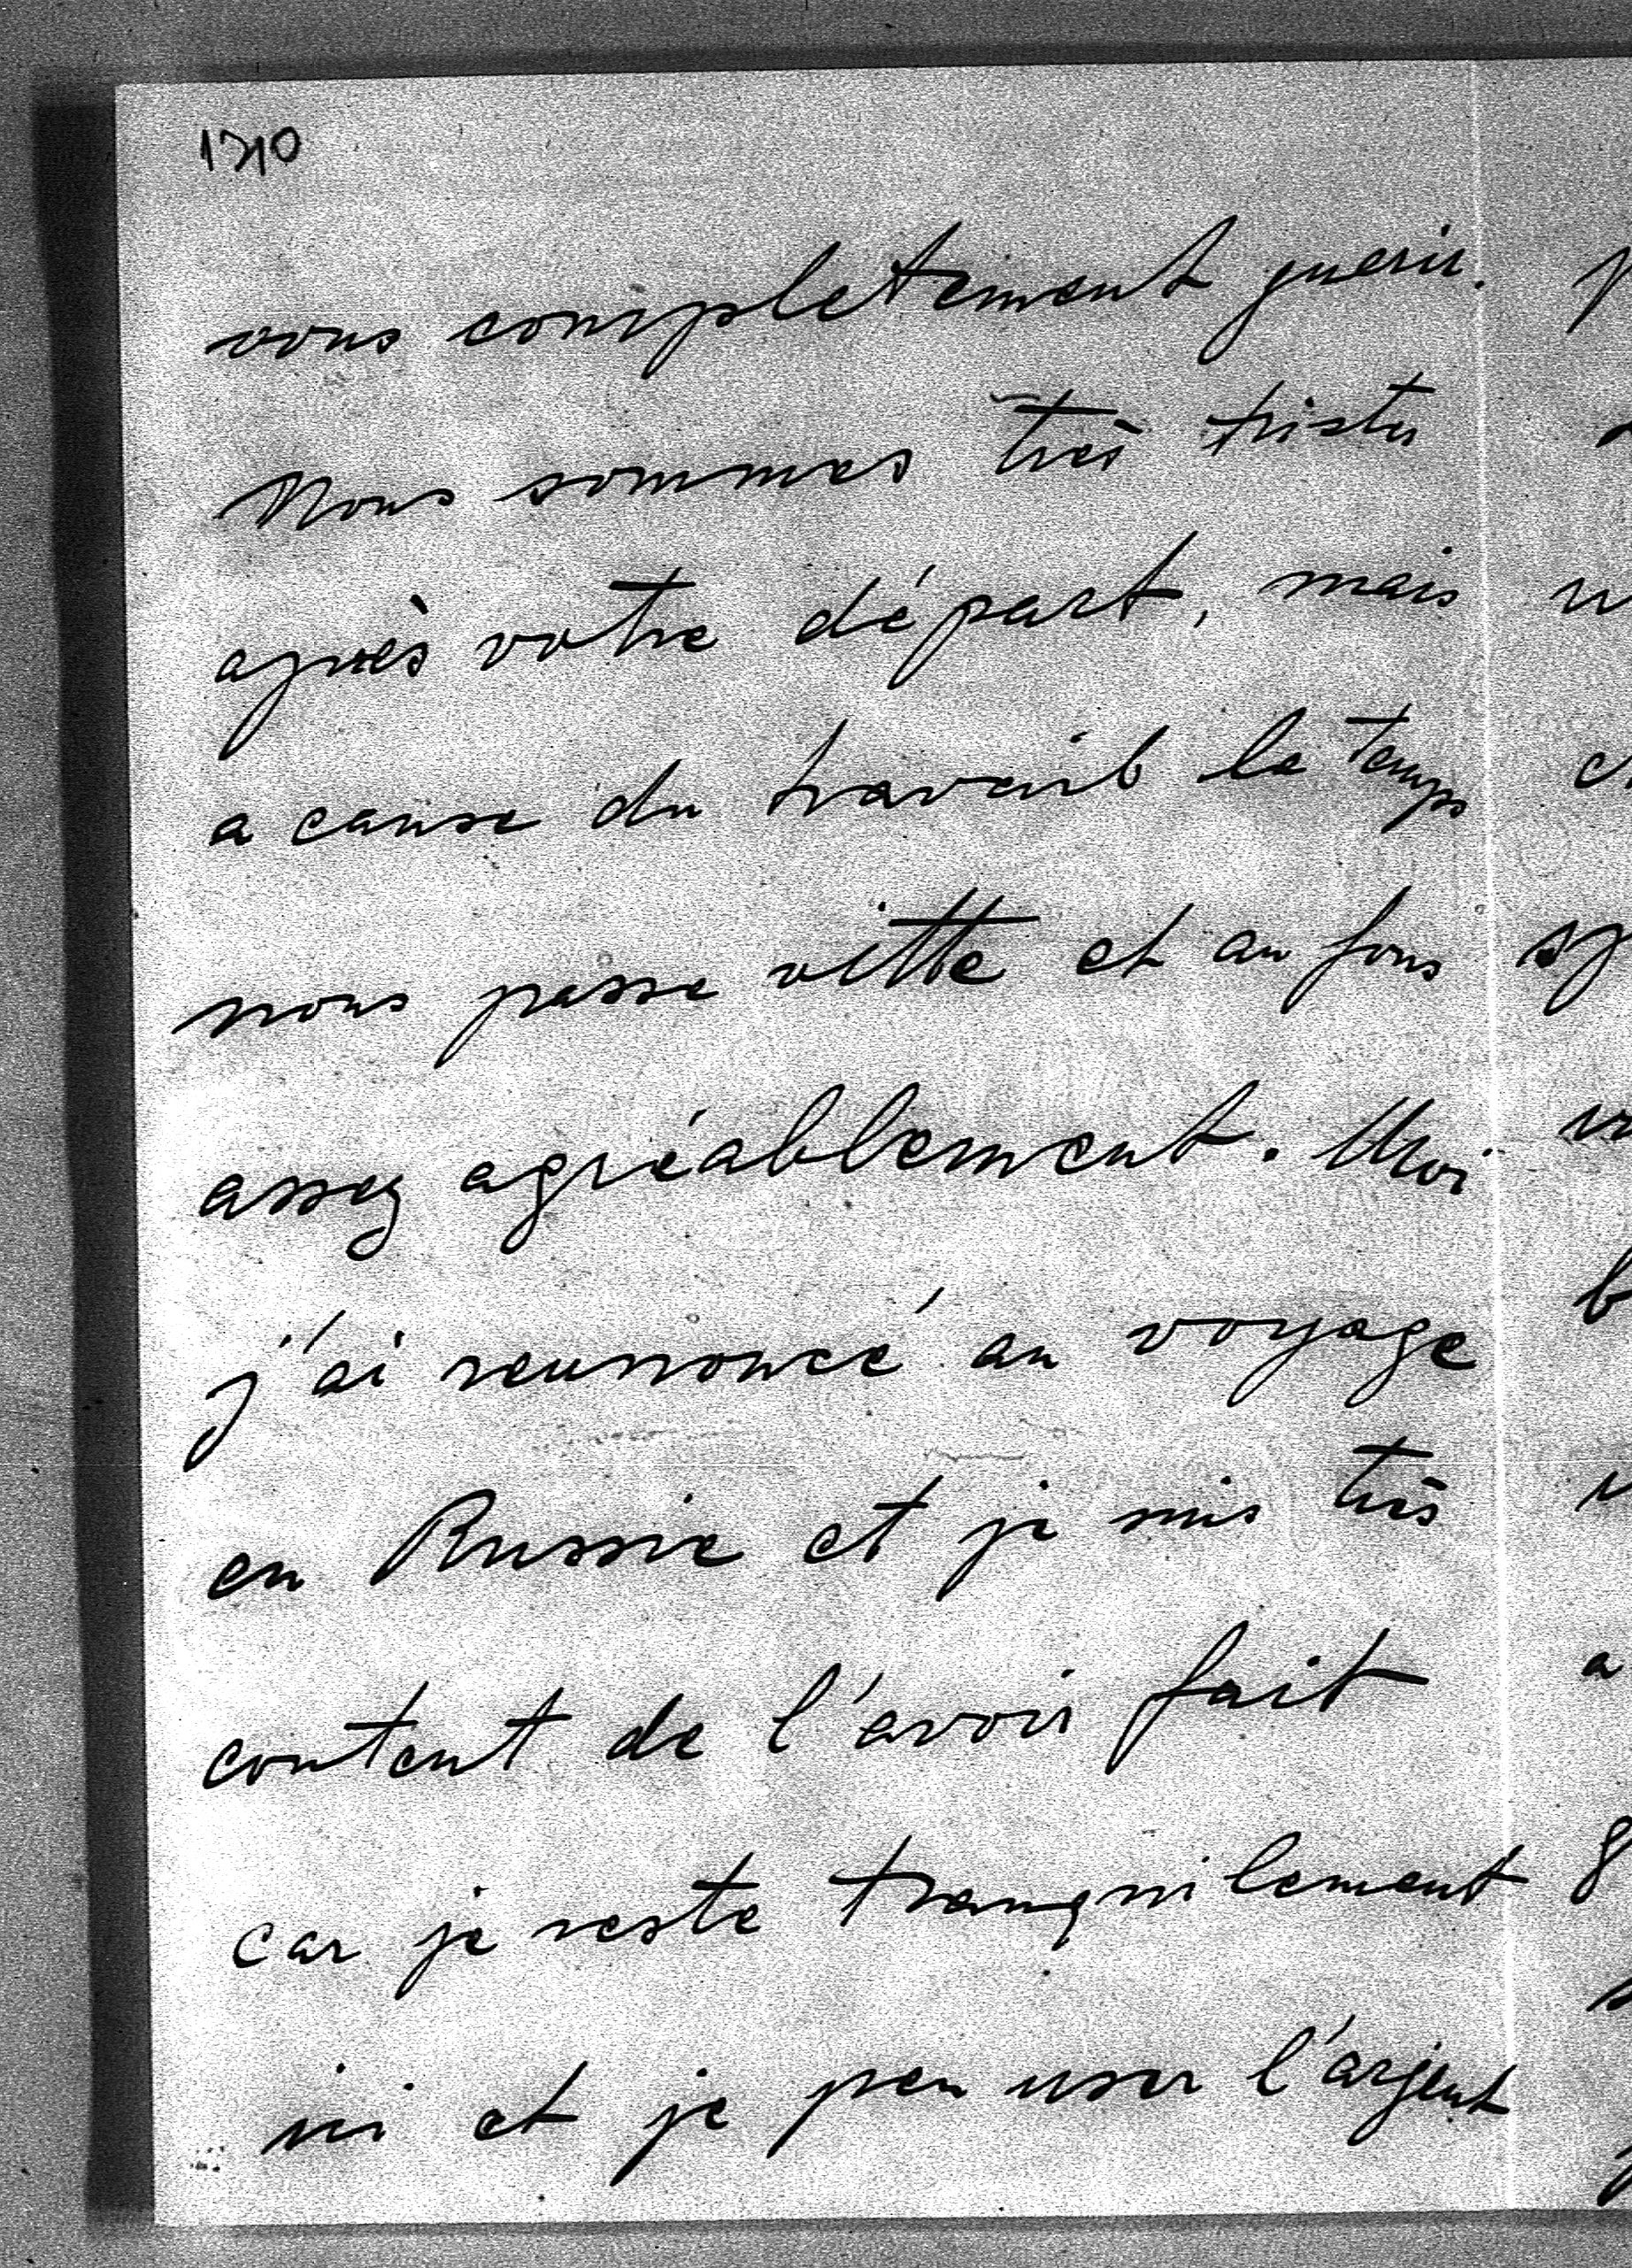 1710
vous completement guerir.
Nous sommes très tristes
après votre départ, mais
a cause du travail le temps
nous passe vitte et au fons
assez agréablement. Moi
j'ai reunoncé au voyage
en Russie et je suis très
content de l'avoir fait
car je reste tranquilement
ici et je peu user l'arjent